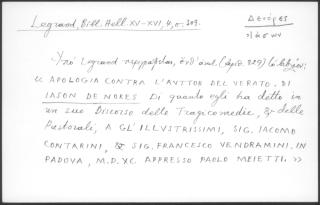 Legrand, Bibl. Hell. XV-XVI, 4, σ. 303.
Δενόρες
Ἰάσων
Ὑπὸ Legrand περιγράφεται, ὑπ' ἀριθ. (829) τὸ βιβλίον:
« APOLOGIA CONTRA L'AVTTOR DEL VERATO. DI
IASON DE NORES Di quanto egli ha detto in
un suo Discorso delle Tragicomedie, & delle
Pastorali, A GL'ILLVSTRISSIMI, SIG. IACOMO
CONTARINI, & SIG. FRANCESCO VENDRAMINI. IN
PADOVA, M.D.XC. APPRESSO PAOLO MEIETTI. »